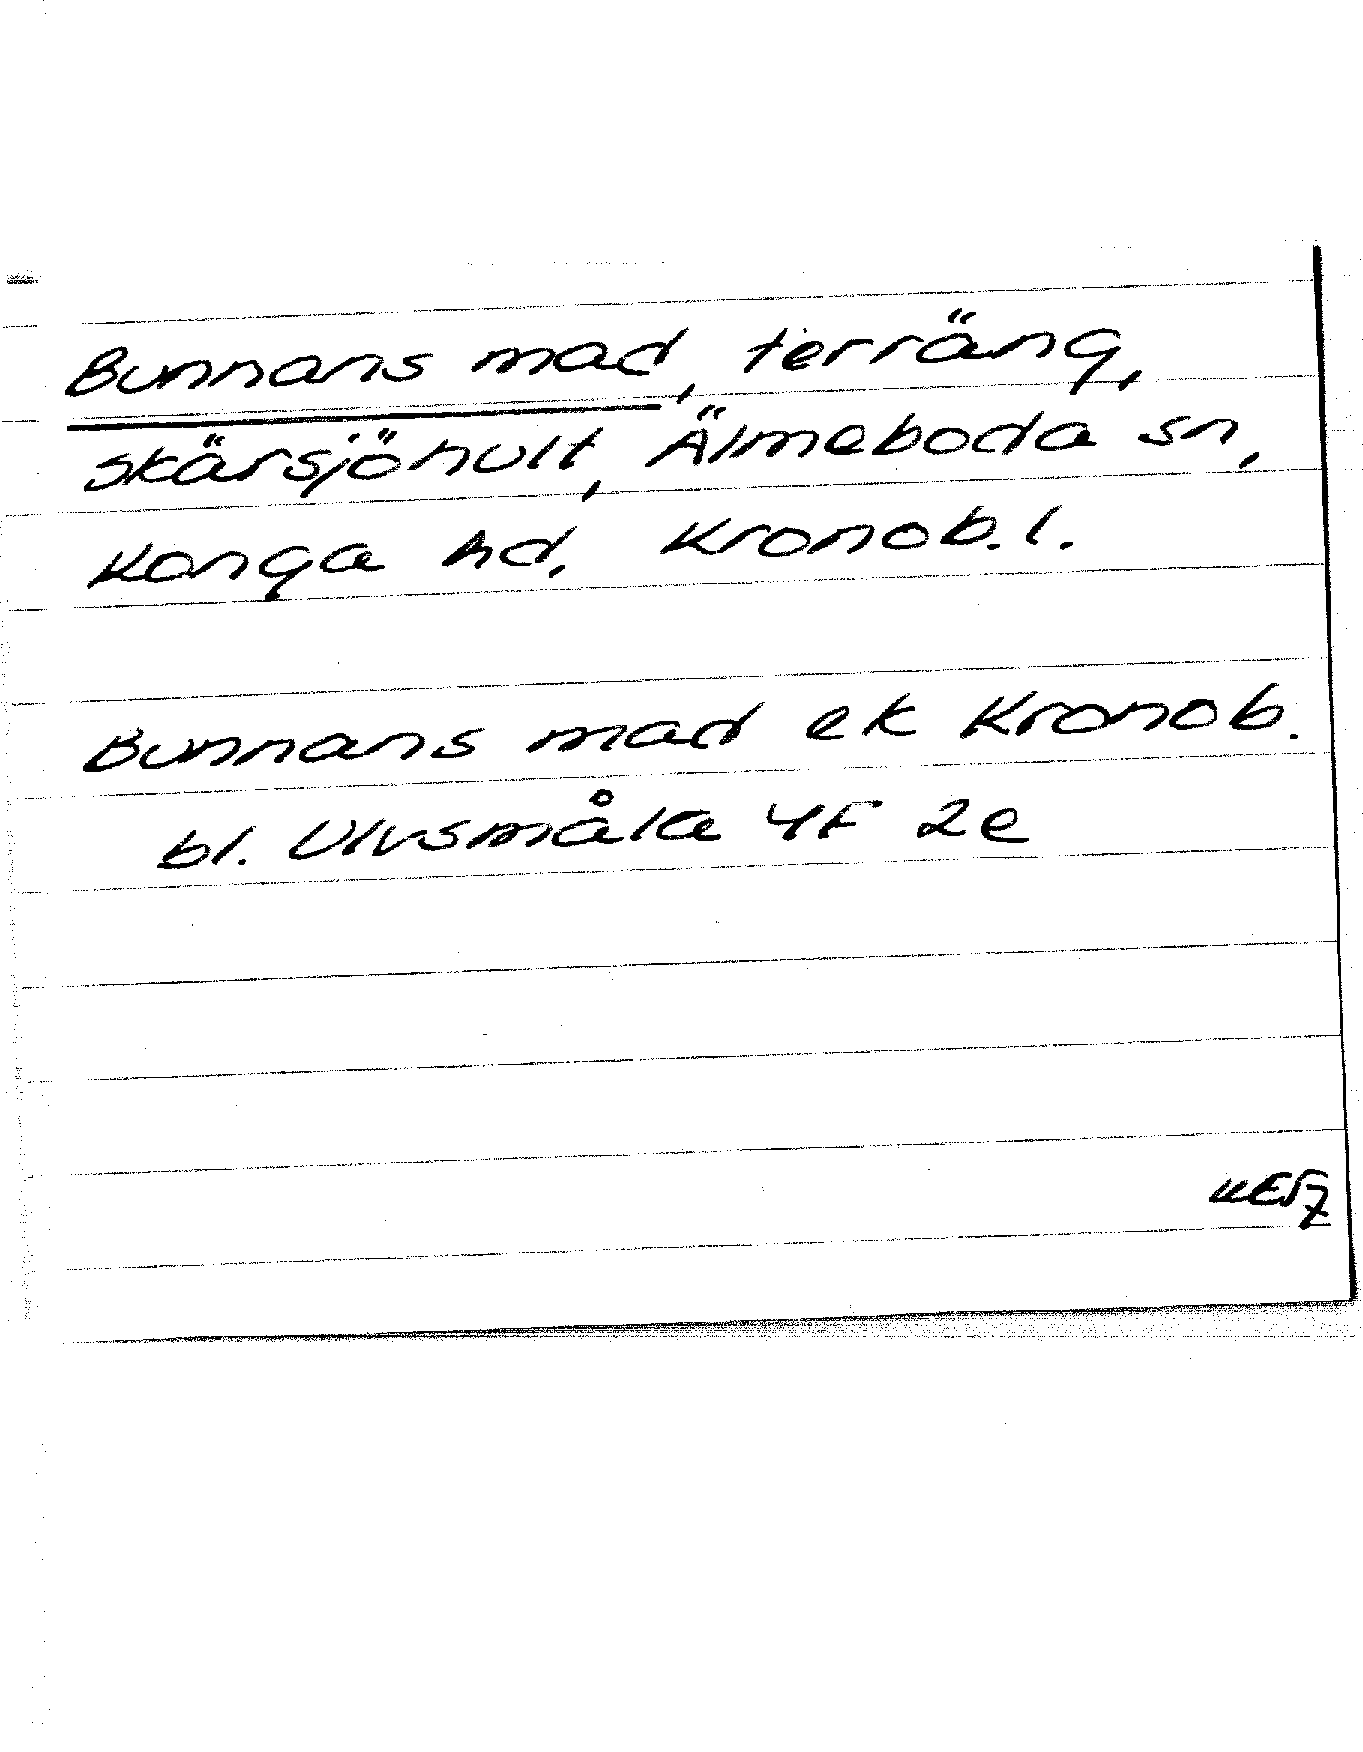 Bunnans mad, terräng,
Skärsjöhult, Älmeboda sn,
Konga hd, Kronob. l.
Bunnans mad ek Kronob.
bl. Ulvsmåla 4F 2e